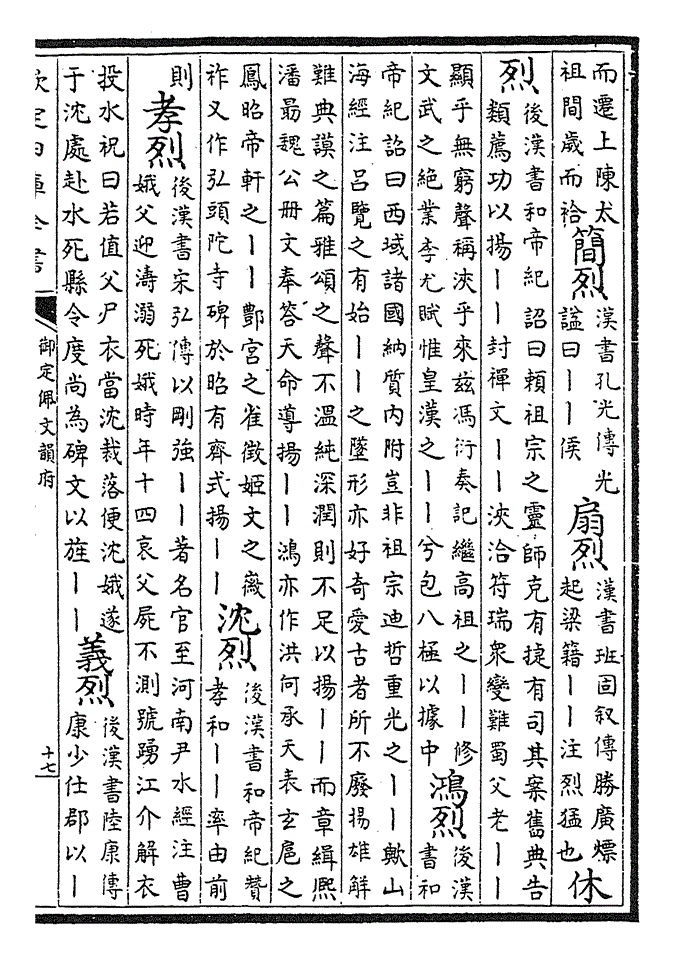 而遷上陳太
祖間歲而祫
簡烈
漢書孔光傳光
諡曰丨丨侯
扇烈
漢書班固叙傳勝廣熛
起梁籍丨丨注烈猛也
休
烈
後漢書和帝紀 詔曰賴祖宗之靈師克有捷有司其案舊典告
類薦功以揚丨丨封禪文丨丨浹洽符瑞衆變難蜀父老丨丨
顯乎無窮聲稱浹乎來兹馮衍奏記繼高祖之丨丨修
文武之絶業李尤賦惟皇漢之丨丨兮包八極以據中
鴻烈
後漢
書和
帝紀詔曰西域諸國納質内附豈非祖宗迪哲重光之丨丨歟山
海經注吕覽之有始丨丨之墜形亦好奇愛古者所不廢揚雄解
難典謨之篇雅頌之聲不溫純深潤則不足以揚丨丨而章緝熙
潘朂魏公冊文奉答天命導揚丨丨鴻亦作洪何承天表玄扈之
鳳昭帝軒之丨丨酆宫之雀徵姬文之薇
祚又作弘頭陀寺碑於昭有齊式揚丨丨
沈烈
後漢書和帝紀贊
孝和丨丨率由前
則
孝烈
後漢書宋弘傳以剛強丨丨著名官至河南尹水經注曹
娥父迎濤溺死娥時年十四哀父屍不測號踴江介解衣
投水祝曰若值父尸衣當沈裁落便沈娥遂
于沈處赴水死縣令度尚為碑文以旌丨丨
義烈
後漢書陸康傳
康少仕郡以丨
欽定四庫全書
御定佩文韻府
十七